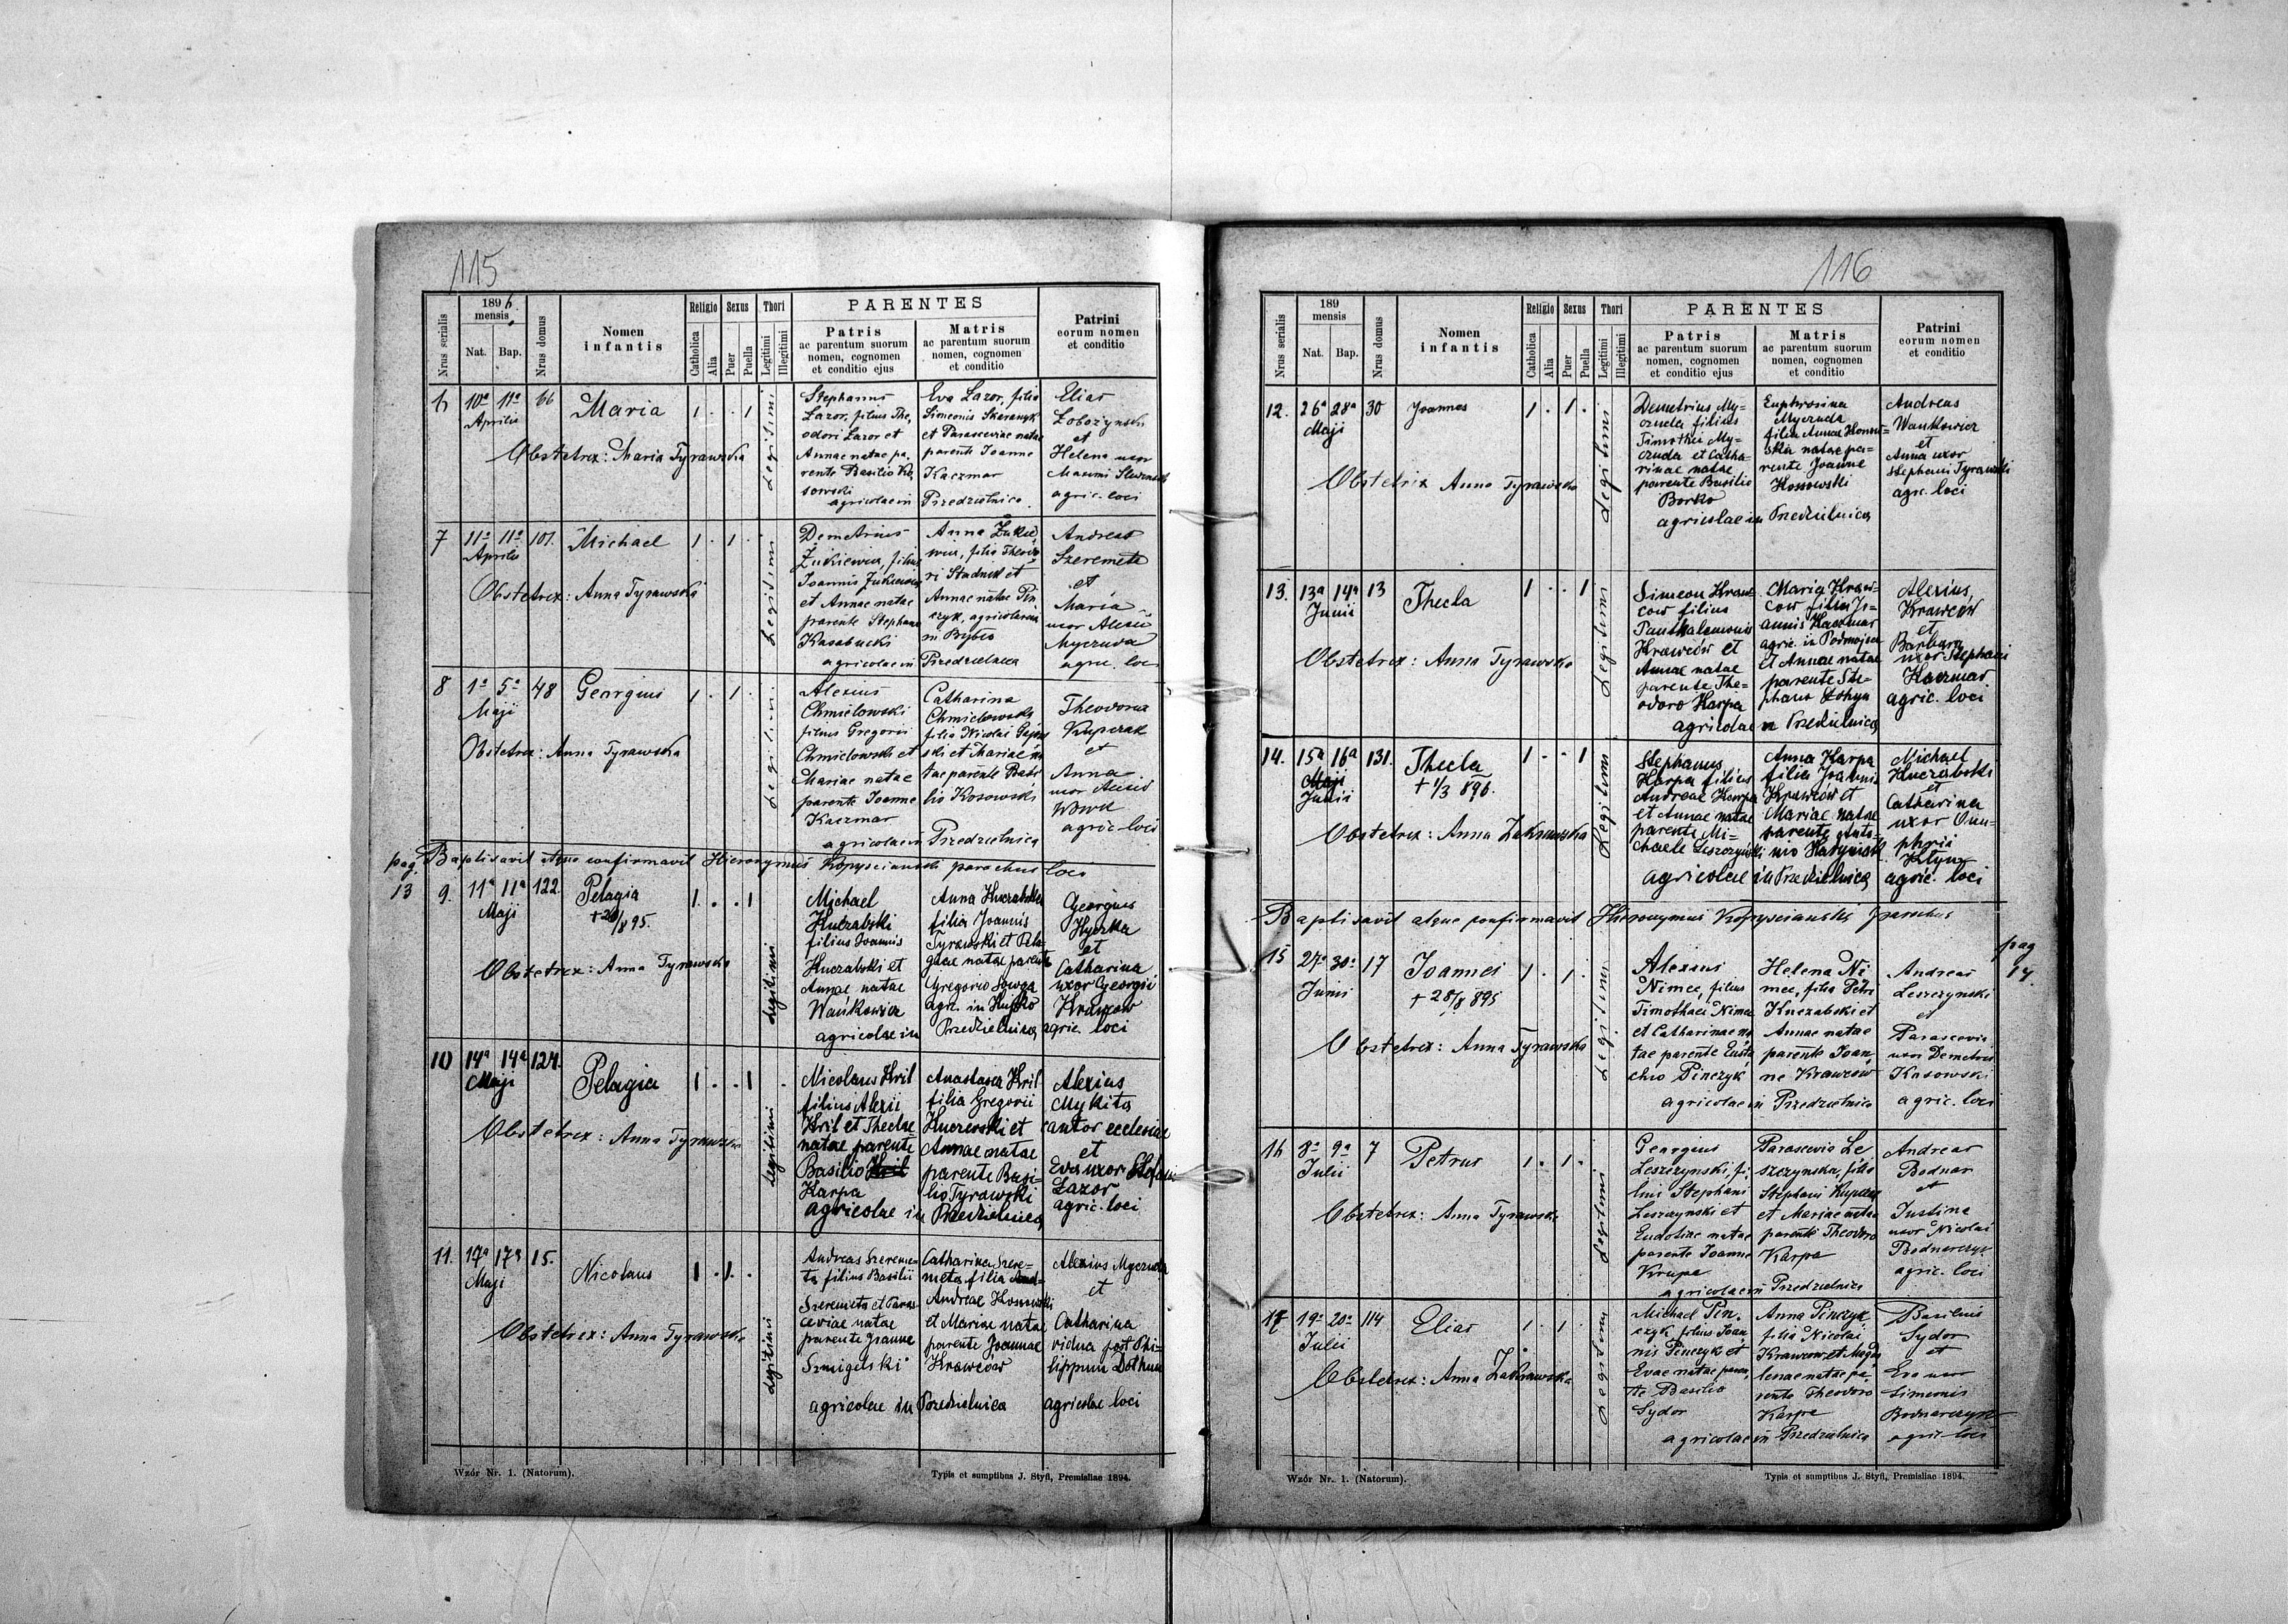 115
1895
mensis
Nrus serialis
Nat.
Bap.
Nrus domus
Nomen
infantis
Religio
Catholica
Alia
Sexus
Puer
Puella
Thori
Legitimi
Illegitimi
PARENTES
Patris
ac parentum suorum
nomen, cognomen
et conditio ejus
Matris
ac parentum suorum
nomen, cognomen
et conditio
Patrini
eorum nomen
et conditio
6 10a 11a 66 Maria 1 . . 1
Aprilis
Obstetrix: Maria Tyrawska
Legitimi
Stephanus
Lazor, filius The,
odori Lazor et
Annae natae pa,
rente Basilio Ko,
sowski
agricolae in
Eva Lazor, filia
Simeonis
et Parasceviae natae
parente Joanne
Kaczmar
Przedzielnica
Elias
et
Helena uxor
Maximi
agric. loci
7 11a 11a 101. Michael 1 . 1 .
Aprilis
Obstetrix: Anna Tyrawska
Legitimi
Demetrius
Żukiewicz, filius
Joannis Żukiewicz
et Annae natae
parente Stephano
agricolae in
Anna Żukie,
wicz, filia Theodo,
ri Stadnik et
Annae natae Pin
czyk, agricolarum
in Rybno
Przedzielnica
Andreas
Szeremeta
et
Maria
uxor Alexii
Myczuda
agric. loci
8 1a 5a 48 Georgius 1 . 1 .
Maji
Obstetrix: Anna Tyrawska
Legitimi
Alexius
Chmielowski
filius Gregorii
Chmielowski et
Mariae natae
parente Joanne
Kaczmar
agricolae in
Catharina
Chmielowski
filia Nicolai
ski et Mariae na
tae parente Basi
lio Kosowski
Przedzielnica
Theodorus
Kupczak
et
Anna
uxor Alexii
agric. loci
pag. Baptisavit atque confirmavit Hieronymus Kopyscianski parochus loci
13 9. 11a 11a 122. Pelagia 1. . . 1
Maji
Obstetrix: Anna Tyrawska
legitimi
Michael
Kuczabski
filius Joannis
Kuczabski et
Annae natae
Wańkowicz
agricolae in
Anna Kuczabska
filia Joannis
Tyrawski et Pela-
giae natae parente
Gregorio Sowga
Przedzielnica
Georgius
Hyczka
et
Catharina
uxor Georgii
Krawców
agric. loci
10 14a 14a 124. Pelagia 1 . . 1
Maji
Obstetrix: Anna Tyrawska
legitimi
Nicolaus Kril
filius Alexii
Kril et Theclae
natae parente
Basilio Kril
Karpa
agricolae in
Anastasia Kril
filia Gregorii
et
Annae natae
parente Basi-
lio Tyrawski
Przedzielnica
Alexius
Mykita
cantor ecclesiae
et
Eva uxor Stefani
Łazor
agric. loci
11. 17a 17a 15. Nicolaus 1 . 1 .
Maji
Obstetrix: Anna Tyrawska
legitimi
Andreas Szereme-
ta filius Basilii
Szeremeta et Paras-
ceviae natae
parente Joanne
Szmigelski
agricolae in
Catharina Szere-
meta filia
Andreae Kossowski
et Mariae natae
parente Joannae
Krawców
Przedzielnica
Alexius Myczuda
et
Catharina
vidua post Phi-
lippum
agricolae loci
Wzór Nr. 1. (Natorum).
Typis et sumptibus J. Styfi, Premisliae 1894.
116
189
mensis
Nrus serialis
Nat.
Bap.
Nrus domus
Nomen
infantis
Religio
Catholica
Alia
Sexus
Puer
Puella
Thori
Legitimi
Illegitimi
PARENTES
Patris
ac parentum suorum
nomen, cognomen
et conditio ejus
Matris
ac parentum suorum
nomen, cognomen
et conditio
Patrini
eorum nomen
et conditio
12. 26a 28a 30 Joannes 1 . 1 .
Maji
Obstetrix Anna Tyrawska
Legitimi
Demetrius My-
czuda filius
Timothei My-
czuda et Catha-
rinae natae
parente Basilio
Borko
agricolae in
Euphrosina
Myczuda
filia Annae Kossow-
ska natae pa-
rente Joanne
Kossowski
Przedzielnica
Andreas
Wankowicz
et
Anna uxor
Stephani Tyrawski
agr. loci
13. 13a 14a 13 Thecla 1 . . 1
Junii
Obstetrix: Anna Tyrawska
Legitimi
Simeon Kraw-
cow filius
Pantalemonis
Krawców et
Annae natae
parente The-
odoro Karpa
agricolae
Maria Kraw-
cow filia Jo-
annis Kaczmar
agric. in
et Annae natae
parente Ste-
phano
in Przedzielnica
Alexius,
Krawców
et
Barbara
uxor Stephani
Kaczmar
agric. loci
14. 15a 16a 131. Thecla 1 . . 1
Maji
Junii + 1/3 896.
Obstetrix: Anna Zakrawska
Legitimi
Stephanus
Karpa filius
Andreae Karpa
et Annae natae
parente Mi-
chaele Leszczyński
agricolae
Anna Karpa
filia Joannis
Krawców et
Mariae natae
parente Anto-
nio
in Przedzielnica
Michael
Kuczabski
et
Catharina
uxor Onu-
phrii
agric. loci
Baptisavit atque confirmavit Hieronymus Kopyscianski parochus
pag
14.
15 27a 30a 17 Joannes 1 . 1 .
Junii + 28/8 895
Obstetrix: Anna Tyrawska
Legitimi
Alexius
Nimec, filius
Timothaei Nimec
et Catharinae na
tae parente Eusta
chio Pinczyk
agricolae in
Helena Ni
mec, filia Petri
Kuczabski et
Annae natae
parente Joan,
ne Krawcow
Przedzielnica
Andreas
Leszczynski
et
Parascevia
uxor Demetrii
Kosowski
agric. loci
16 8a 9a 7 Petrus 1 . 1 .
Julii
Obstetrix: Anna Tyrawska
Legitimi
Georgius
Leszczynski, fi,
lius Stephani
Leszczynski et
Eudosiae natae
parente Joanne
Krupa
agricolae in
Parascevia Le
szczynska, filia
Stephani Kupczak
et Mariae natae
parente Theodoro
Karpa
Przedzielnica
Andreas
Bodnar
et
Justina
uxor Nicolai
Bodnarczyk
agric. loci
17 19a 20a 114 Elias 1 . 1 .
Julii
Obstetrix: Anna Zakrawska
Legitimi
Michael Pin,
czyk filius Joan
nis Pinczyk et
Evae natae paren,
te Basilio
Sydor
agricolae in
Anna Pinczyk
filia Nicolai
Krawcow et Magda
lenae natae pa,
rente Theodoro
Karpa
Przedzielnica
Basilius
Sydor
et
Eva uxor
Simeonis
Bodnarczyk
agric. loci
Wzór Nr. 1. (Natorum).
Typis et sumptibus J. Styfi, Premisliae 1894.